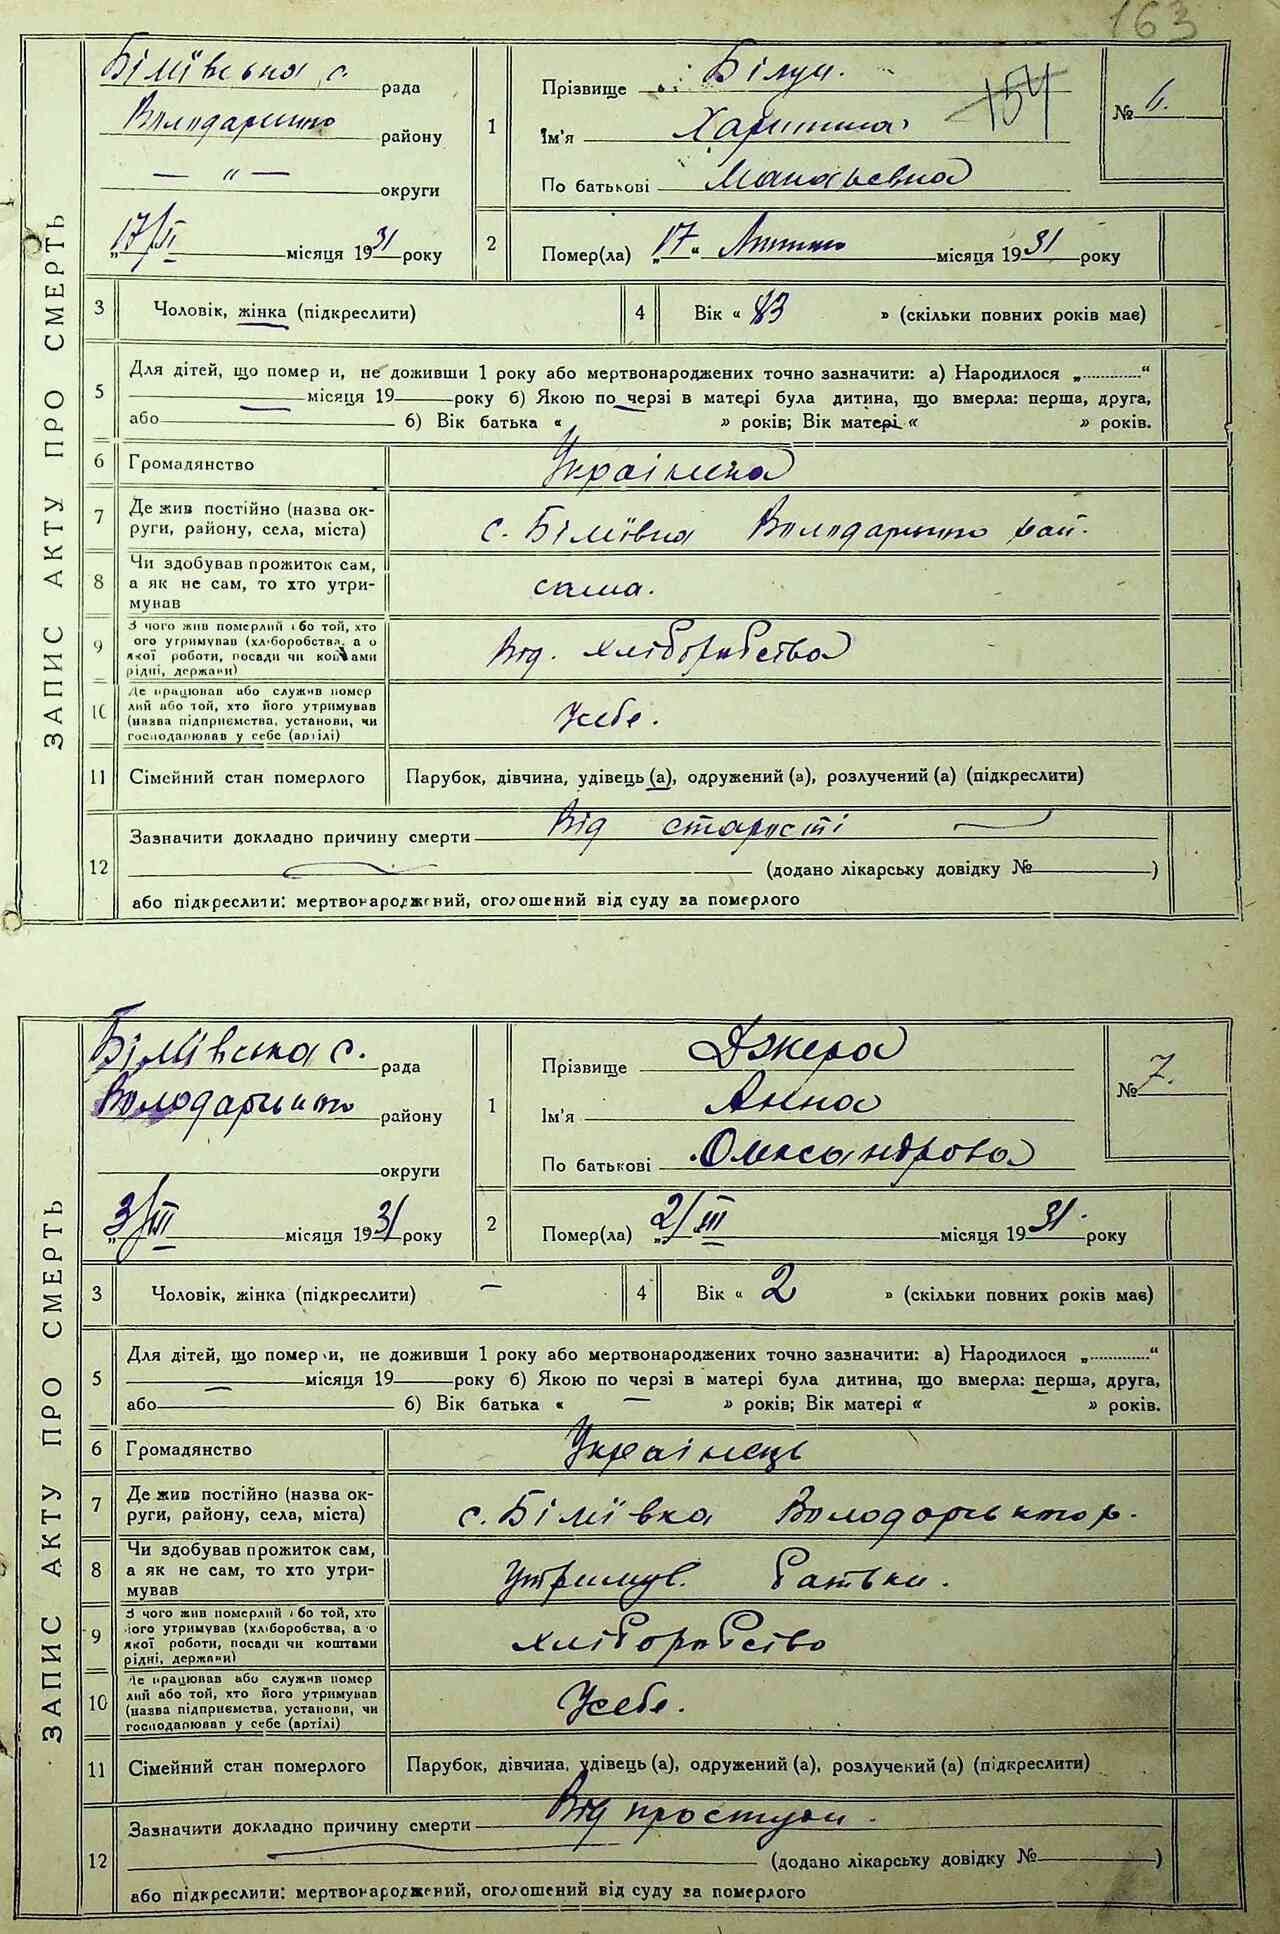 163
ЗАПИС АКТУ ПРО СМЕРТЬ
Біліївська с. рада
району
— „ — округи
„17/II місяця 1931 року
1
Прізвище Білун.
Ім'я Харитина
По батькові
154
№ 6.
2
Помер(ла) „17“ Лютого місяця 1931 року
3 Чоловік, жінка (підкреслити)
4 Вік « 83 » (скільки повних років має)
5 Для дітей, що помер и, не доживши 1 року або мертвонароджених точно зазначити: а) Народилося „............“
місяця 19 року б) Якою по черзі в матері була дитина, що вмерла: перша, друга,
або б) Вік батька « » років; Вік матері « » років.
6 Громадянство Українка
7 Де жив постійно (назва ок-
руги, району, села, міста) с. Біліївка рай.
8 Чи здобував прожиток сам,
а як не сам, то хто утри-
мував сама.
9 З чого жив померлий або той, хто
ого утримував (хліборобства, а о
якої роботи, посади чи коштами
рідні, держави) Від. хліборобства
10 Де працював або служив помер
лий або той, хто його утримував
(назва підприємства, установи, чи
господарював у себе (артілі) Усебе.
11 Сімейний стан померлого Парубок, дівчина, удівець (а), одружений (а), розлучений (а) (підкреслити)
12 Зазначити докладно причину смерти Від старості
(додано лікарську довідку № )
або підкреслити: мертвонароджений, оголошений від суду за померлого
ЗАПИС АКТУ ПРО СМЕРТЬ
Біліївська с. рада
району
округи
„3/III місяця 1931 року
1
Прізвище Джера
Ім'я Анна
По батькові Олександрова
№ 7.
2
Помер(ла) „2/III місяця 1931. року
3 Чоловік, жінка (підкреслити) —
4 Вік « 2 » (скільки повних років має)
5 Для дітей, що помер и, не доживши 1 року або мертвонароджених точно зазначити: а) Народилося „............“
місяця 19 року б) Якою по черзі в матері була дитина, що вмерла: перша, друга,
або б) Вік батька « — » років; Вік матері « » років.
6 Громадянство Українець
7 Де жив постійно (назва ок-
руги, району, села, міста) с. Біліївка р.
8 Чи здобував прожиток сам,
а як не сам, то хто утри-
мував утримув. батьки.
9 З чого жив померлий або той, хто
його утримував (хліборобства, а о
якої роботи, посади чи коштами
рідні, держави) хліборобство
10 Де працював або служив помер
лий або той, хто його утримував
(назва підприємства, установи, чи
господарював у себе (артілі) Усебе.
11 Сімейний стан померлого Парубок, дівчина, удівець (а), одружений (а), розлучений (а) (підкреслити)
12 Зазначити докладно причину смерти Від простуди.
(додано лікарську довідку № )
або підкреслити: мертвонароджений, оголошений від суду за померлого